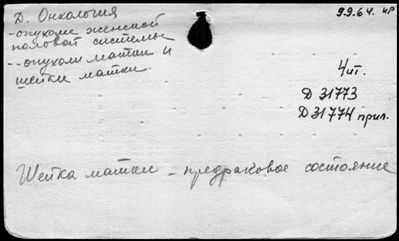 Д. Онкология
- опухоли женской
половой системы
-- опухоли матки и
шейки матки.
9.9.64. кр
4 ит.
Д 31773
Д 31774 прил.
Шейка матки - предраковое состояние